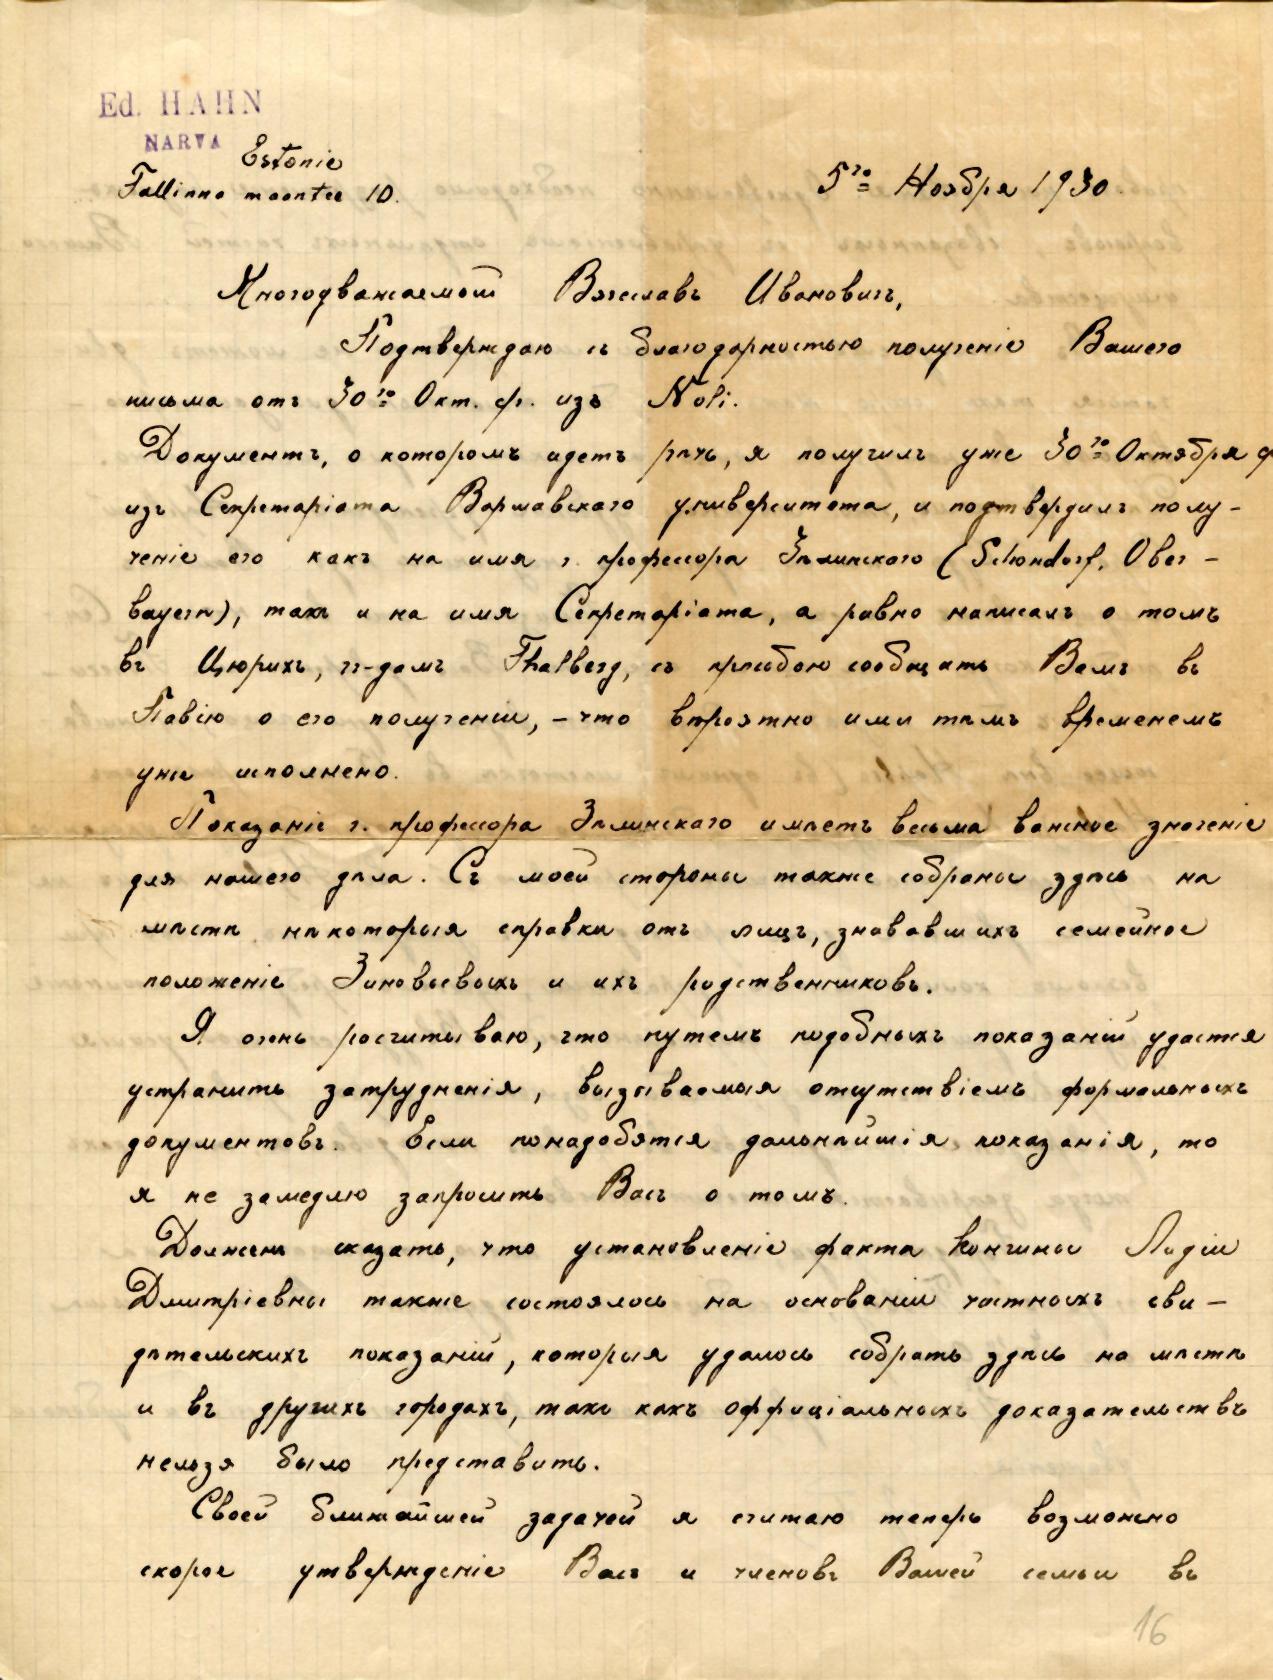 Ed. HAHN
NARVA
Estonie
Tallinna maantee 10.
5го Ноября 1930.
Многоуважаемый Вячеславъ Ивановичъ,
Подтверждаю съ благодарностью полученіе Вашего
письма отъ 30го Окт. с. г. изъ Noli.
Документъ, о которомъ идетъ рѣчь, я получилъ уже 30го Октября
изъ Секретаріата Варшавскаго университета, и подтвердилъ полу-
ченіе его какъ на имя г. профессора Зѣлинскаго (Schondorf, Ober-
bayern), такъ и на имя Секретаріата, а равно написалъ о томъ
въ Цюрихъ, гг-дамъ Thalberg, съ просьбою сообщить Вамъ въ
Павію о его полученіи, – что вѣроятно ими тѣмъ временемъ
уже исполнено.
Показаніе г. профессора Зѣлинскаго имѣетъ весьма важное значеніе
для нашего дѣла. Съ моей стороны также собраны здѣсь на
мѣстѣ нѣкоторыя справки отъ лицъ, знававшихъ семейное
положеніе Зиновьевыхъ и ихъ родственниковъ.
Я очень расчитываю, что путемъ подобныхъ показаній удастся
устранить затрудненія, вызываемыя отсутствіемъ формальныхъ
документовъ. Если понадобятся дальнѣйшія показанія, то
я не замедлю запросить Васъ о томъ.
Долженъ сказать, что установленіе факта кончины Лидіи
Дмитріевны также состоялось на основаніи частныхъ сви-
дѣтельскихъ показаній, которыя удалось собрать здѣсь на мѣстѣ
и въ другихъ городахъ, такъ какъ оффиціальныхъ доказательствъ
нельзя было представить.
Своей ближайшей задачей я считаю теперь возможно
скорое утвержденіе Васъ и членовъ Вашей семьи въ
16